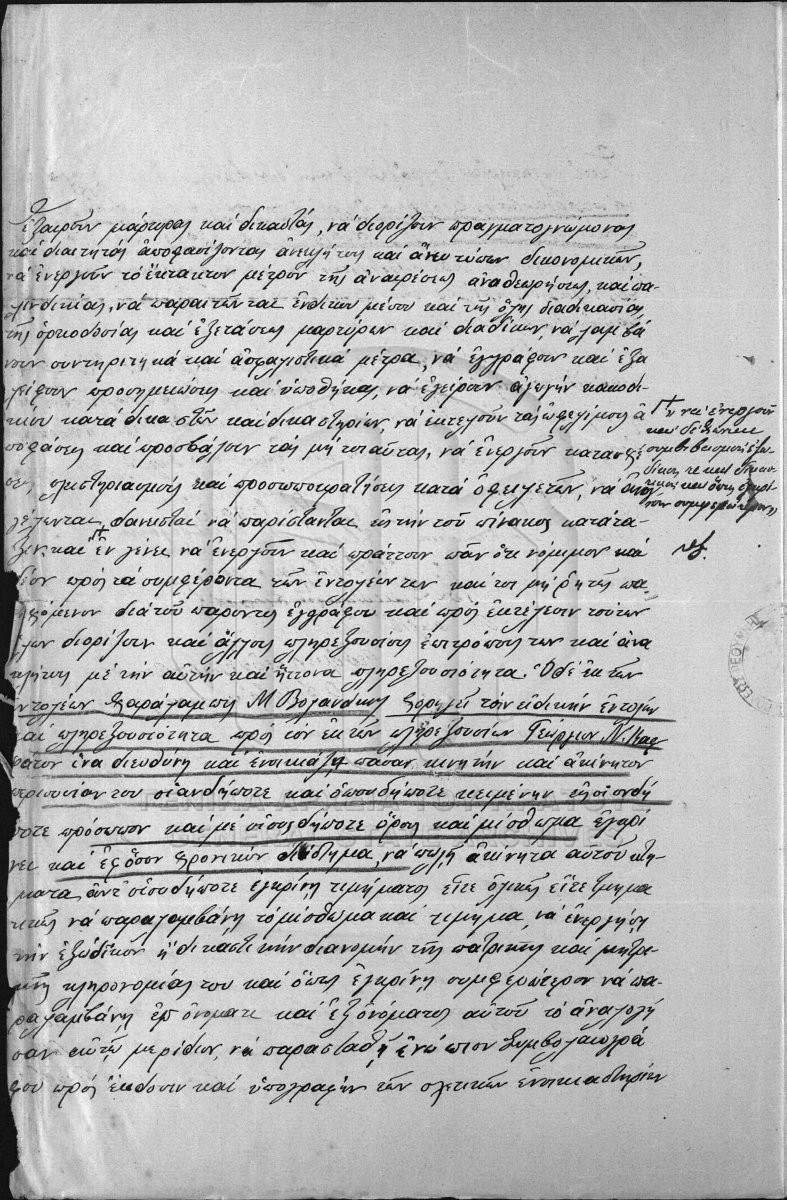 ἐξαιρῶσιν μάρτυρας καὶ δικαστάς, νὰ διορίζωσιν πραγματογνώμονας
καὶ διαιτητὰς ἀποφασίζοντας ἀνεκκλήτως καὶ ἄνευ τύπων δικονομικῶν,
νὰ ἐνεργῶσιν τὸ ἔκτακτον μέτρον τῆς ἀναιρέσεως ἀναθεωρήσεως, καὶ πα-
λινδικίας, νὰ παραιτῶνται ἐνδίκων μέσων καὶ τῆς ὅλης διαδικασίας,
τῆς ὁρκοδοσίας καὶ ἐξετάσεως μαρτύρων καὶ διαδίκων, νὰ λαμβά
νουν συντηρητικὰ καὶ ἀσφαλιστικὰ μέτρα, νὰ ἐγγράφουν καὶ ἐξα
λείφουν προσημειώσεις καὶ ὑποθήκας, νὰ ἐγείρουν ἀγωγὴν κακοδι-
κίας κατὰ δικαστῶν καὶ δικαστηρίων, νὰ ἐκτελοῦν τὰς ὠφελίμους ἀ
ποφάσεις καὶ προσβάλουν τὰς μὴ τοιαύτας, νὰ ἐνεργοῦν κατασχέ
σεις πλειστηριασμοὺς καὶ προσωποκρατήσεις κατὰ ὀφειλετῶν, νὰ
δανεισταὶ νὰ παρίστανται εἰς τὴν τοῦ πίνακος κατάτα-
ξιν καὶ ἐν γένει νὰ ἐνεργοῦν καὶ πράττουν πᾶν ὅτι νόμιμον καὶ
δέον πρὸς τὰ συμφέροντα τῶν ἐντολέων των καὶ τοι μὴ ῥητῶς πε
διὰ τοῦ παρόντος ἐγγράφου καὶ πρὸς ἐκτέλεσιν τούτων
ὅλων διορίζουν καὶ ἄλλους πληρεξουσίους ἐπιτρόπους των καὶ ἀνα
κλήτους μὲ τὴν αὐτὴν καὶ ἥττονα πληρεξουσιότητα. Ὁ δὲ ἐκ τῶν
ἐντολέων Χαράλαμπος Μ Βολανάκης χορηγεῖ τὴν εἰδικὴν ἐντολὴν
καὶ πληρεξουσιότητα πρὸς τὸν ἐκ τῶν πληρεξουσίων Γεώργιον Ν.
ἵνα διευθύνῃ καὶ ἐνοικιάζῃ πᾶσαν κινητὴν καὶ ἀκίνητον
περιουσίαν του οἱανδήποτε καὶ ὁπουδήποτε κειμένην εἰς οἱονδή
ποτε πρόσωπον καὶ μὲ οἵους δήποτε ὅρους καὶ μίσθωμα ἐγκρί
νει καὶ ἐφ' ὅσον χρονικὸν διάστημα, νὰ πωλῇ ἀκίνητα αὐτοῦ κτή
ματα ἀντὶ οἱουδήποτε ἐγκρίνῃ τιμήματος εἴτε ὁλικῶς εἴτε τμημα
τικῶς νὰ παραλαμβάνῃ τὸ μίσθωμα καὶ τίμημα, νὰ ἐνεργήσῃ
τὴν ἐξώδικον ἢ δικαστικὴν διανομὴν τῆς πατρικῆς καὶ μητρι
κῆς κληρονομίας του καὶ ὅπως ἐγκρίνῃ συμφερώτερον νὰ πα-
ραλαμβάνῃ ἐπ' ὀνόματι καὶ ἐξ ὀνόματος αὐτοῦ τὸ ἀναλογῆ
σαν αὐτῷ μερίδιον, νὰ παρασταθῇ ἐνώπιον Συμβολαιογρά
φου πρὸς ἔκδοσιν καὶ ὑπογραφὴν τῶν σχετικῶν ἐνοικιαστηρίων
νὰ ἐνεργοῦν
συμβιβασμοὺς ἐξω
δίκως τε καὶ δικασ
τικῶς καὶ ὅπως ἐγκρί
νουν συμφερώτερον